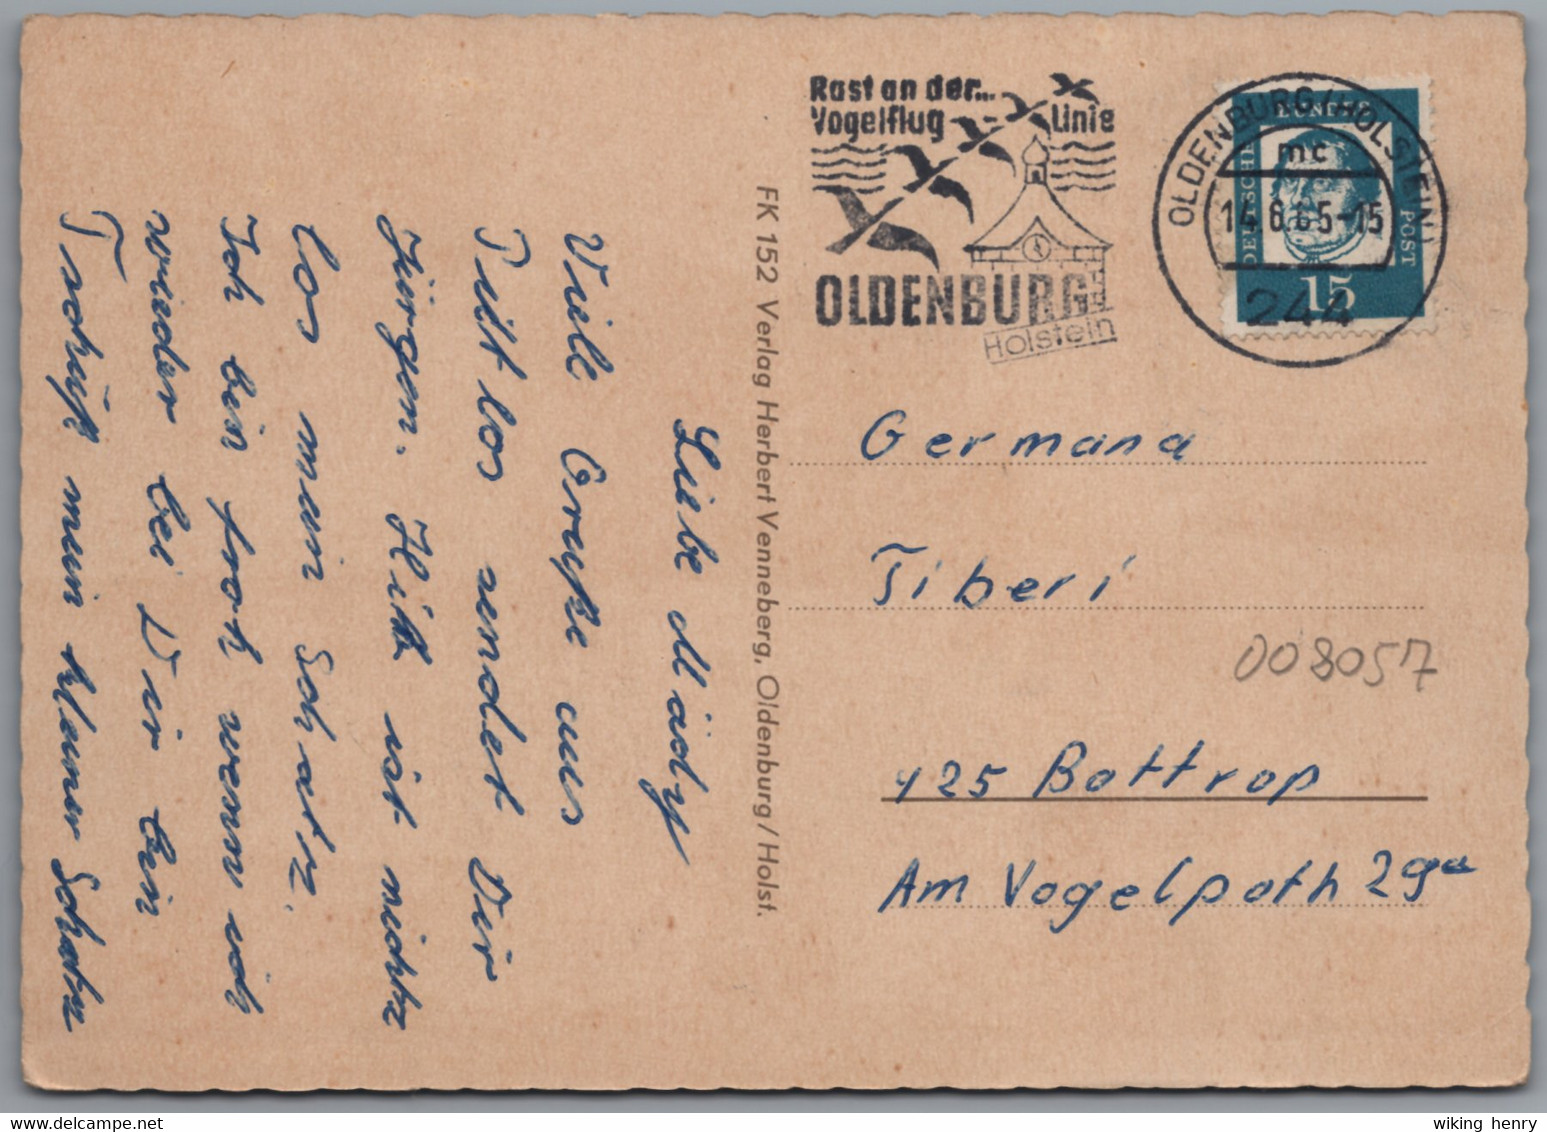 Rast an der...
Vogelflug - Linie
OLDENBURG
Holstein
OLDENBURG/(HOLSTEIN)
mc
14.6.65-15
244
DEUTSCHE BUNDESPOST
15
Germana
Tiberi
008057
425 Bottrop
Am Vogelpoth 29a
FK 152 Verlag Herbert Venneberg, Oldenburg/Holst.
Liebe Mädy
Viele Grüße aus
Putlos sendet Dir
Jürgen. Hir ist nichts
los mein Schatz.
Ich bin froh wenn ich
wieder bei Dir bin
Tschüß mein kleiner Schatz
wiking henry